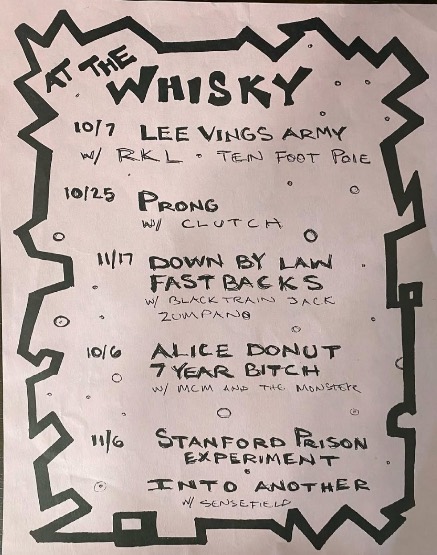 AT THE
WHISKY
10/7 LEE VINGS ARMY
W/ RKL · TEN FOOT POLE
10/25 PRONG
W/ CLUTCH
11/17 DOWN BY LAW
FASTBACKS
W/ BLACK TRAIN JACK
ZUMPANO
10/6 ALICE DONUT
7 YEAR BITCH
W/ MCM AND THE MONSTER
11/6 STANFORD PRISON
EXPERIMENT
INTO ANOTHER
W/ SENSEFIELD